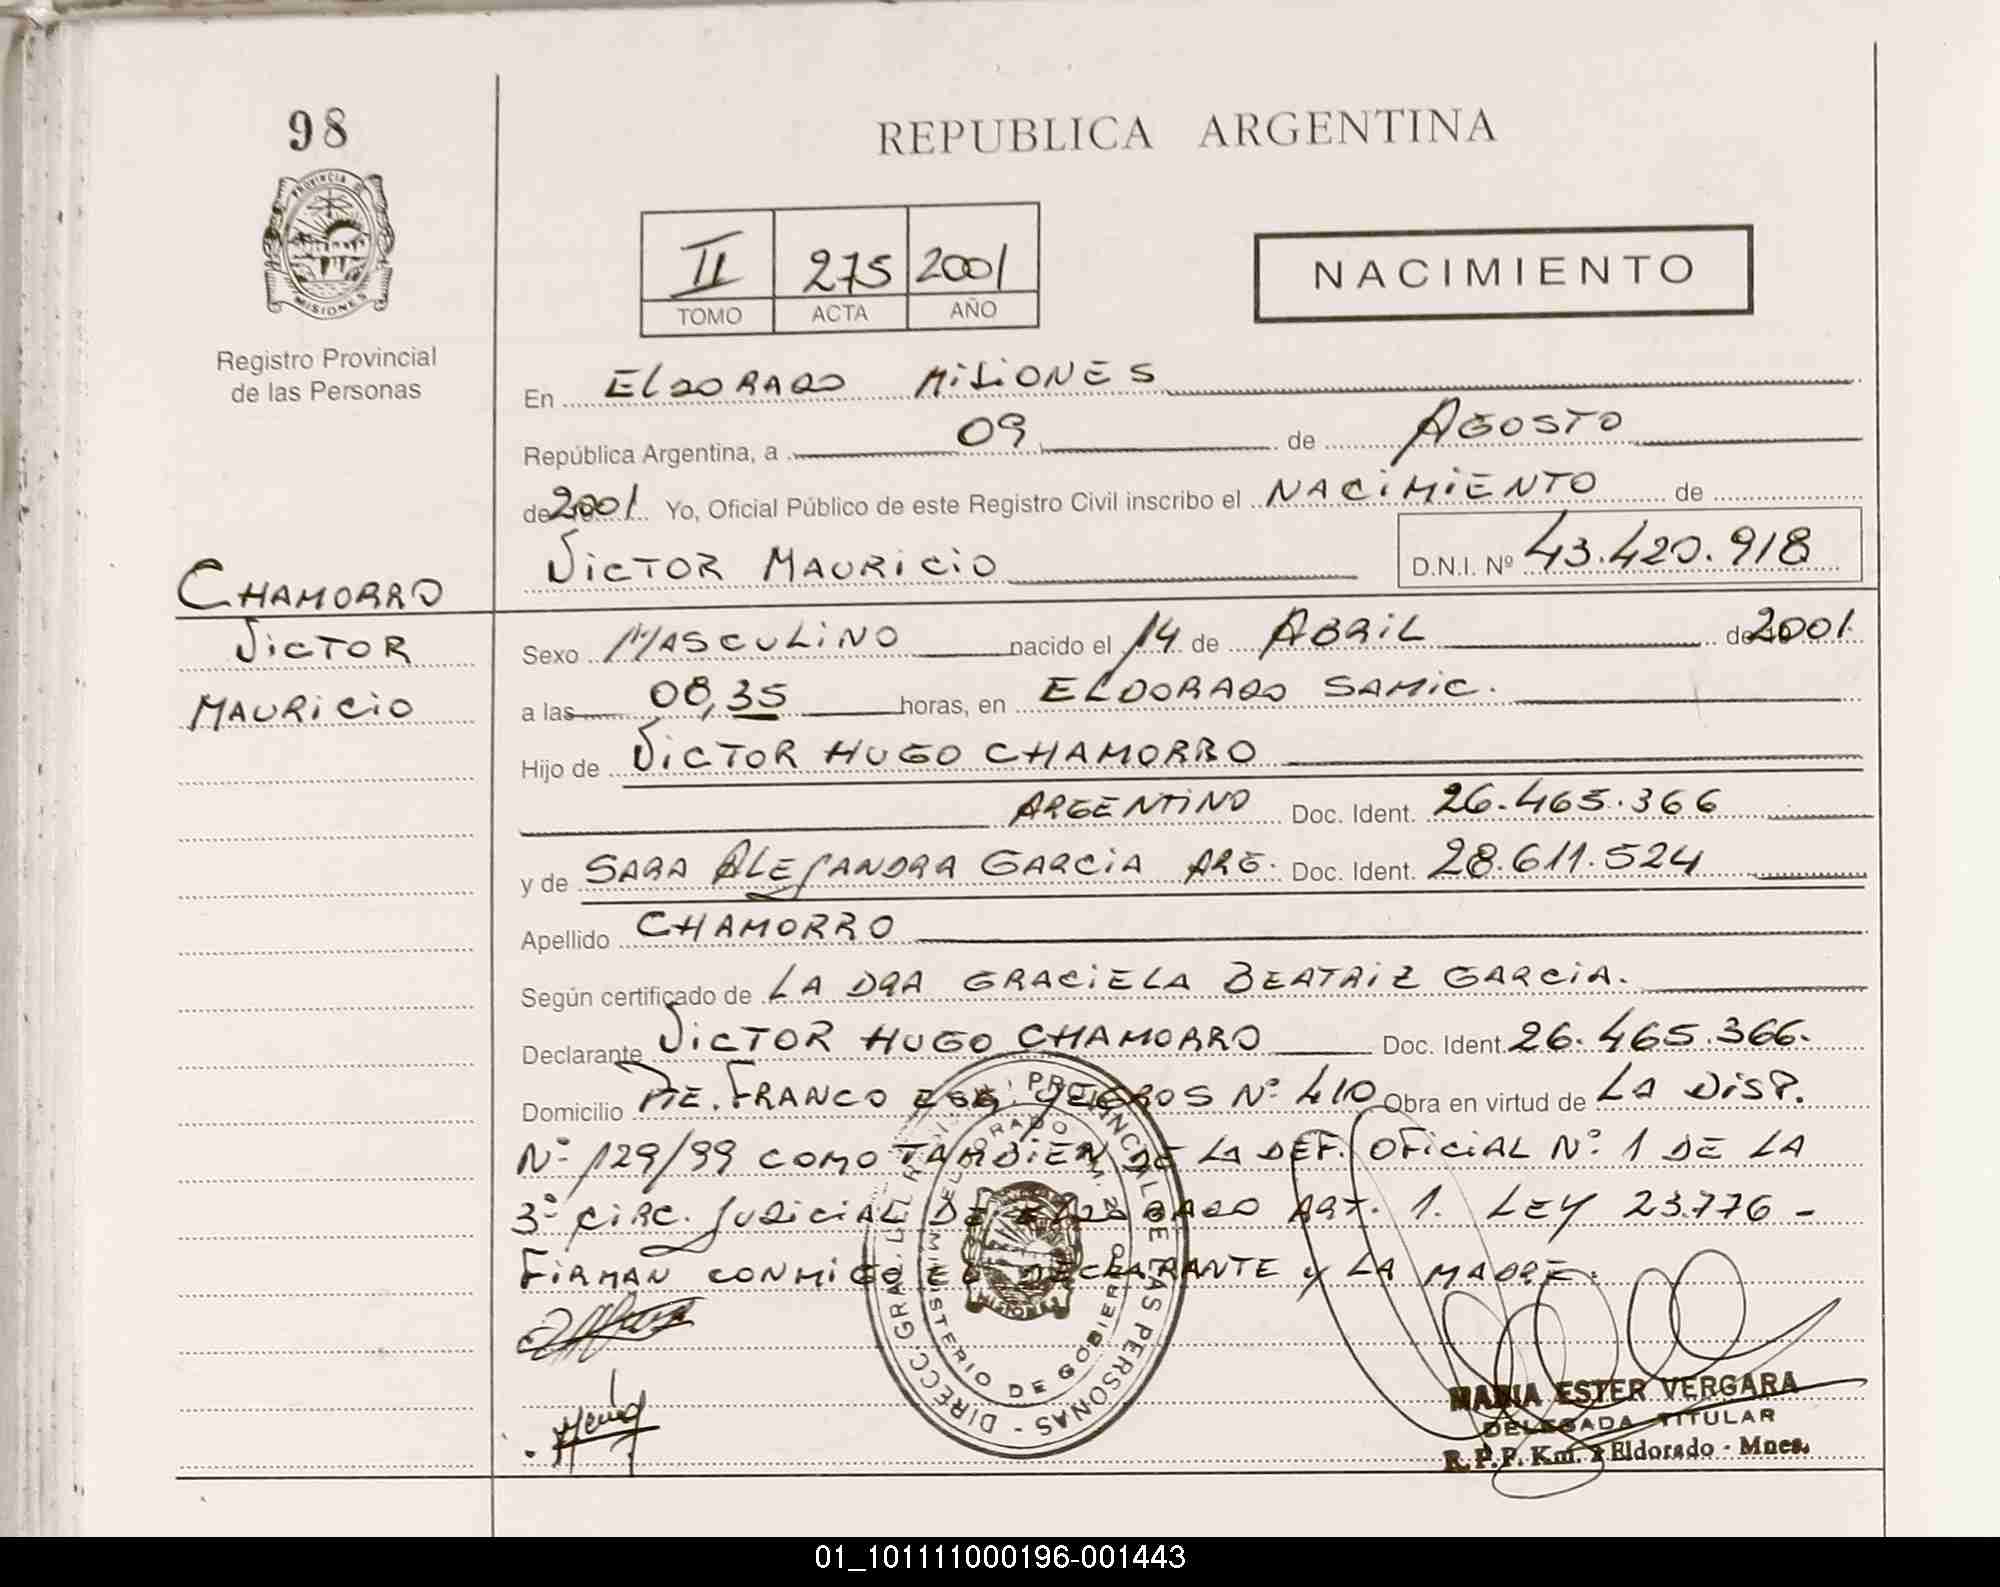 98
PROVINCIA DE
MISIONES
Registro Provincial
de las Personas
CHAMORRO
VICTOR
MAURICIO
REPUBLICA ARGENTINA
II 275 2001
TOMO ACTA AÑO
NACIMIENTO
En ELDORADO MISIONES
República Argentina, a 09 de AGOSTO
de 2001 Yo, Oficial Público de este Registro Civil inscribo el NACIMIENTO de
VICTOR MAURICIO D.N.I. Nº 43.420.918
Sexo MASCULINO nacido el 14 de ABRIL de 2001
a las 08,35 horas, en ELDORADO SAMIC.
Hijo de VICTOR HUGO CHAMORRO
ARGENTINO Doc. Ident. 26.465.366
y de SARA ALEJANDRA GARCIA ARG. Doc. Ident. 28.611.524
Apellido CHAMORRO
Según certificado de LA DRA GRACIELA BEATRIZ GARCIA.
Declarante VICTOR HUGO CHAMORRO Doc. Ident. 26.465.366.
Domicilio PTE. FRANCO ESQ. YEGROS Nº 410 Obra en virtud de LA DISP.
Nº 129/99 COMO TAMBIEN DE LA DEF. OFICIAL Nº 1 DE LA
3º CIRC. JUDICIAL DE ELDORADO ART. 1. LEY 23.776 -
FIRMAN CONMIGO EL DECLARANTE Y LA MADRE.
PROVINCIAL DE LAS PERSONAS - DIRECC. GRAL. DEL
MINISTERIO DE GOBIERNO
ELDORADO
MISIONES
MARIA ESTER VERGARA
DELEGADA TITULAR
R.P.P. Km. Eldorado - Mnes.
01_101111000196-001443